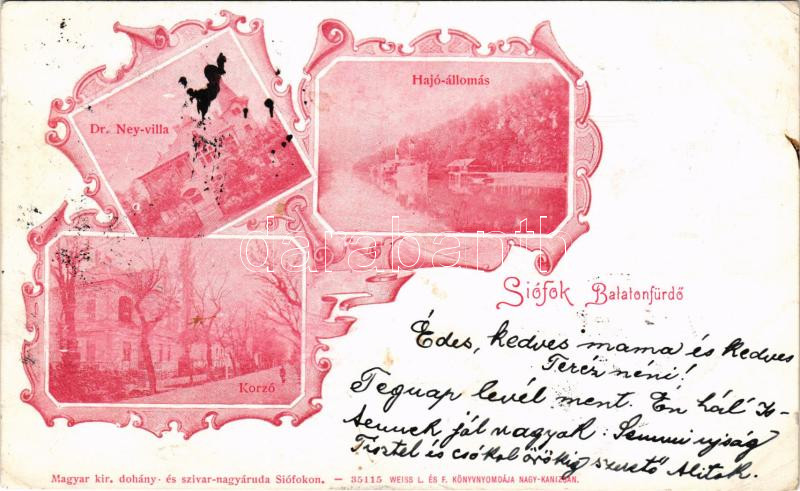 Dr. Ney-villa
Hajó-állomás
darabanth
Siófok Balatonfürdő
Korzó
Édes, kedves mama és kedves
Teréz néni!
Tegnap levél ment. Én hál' Is-
tennek jól vagyok. Semmi ujság
Tisztel és csókol örökig szerető
Magyar kir. dohány- és szivar-nagyáruda Siófokon. — 35115 WEISS L. ÉS F. KÖNYVNYOMDÁJA NAGY-KANIZSÁN.